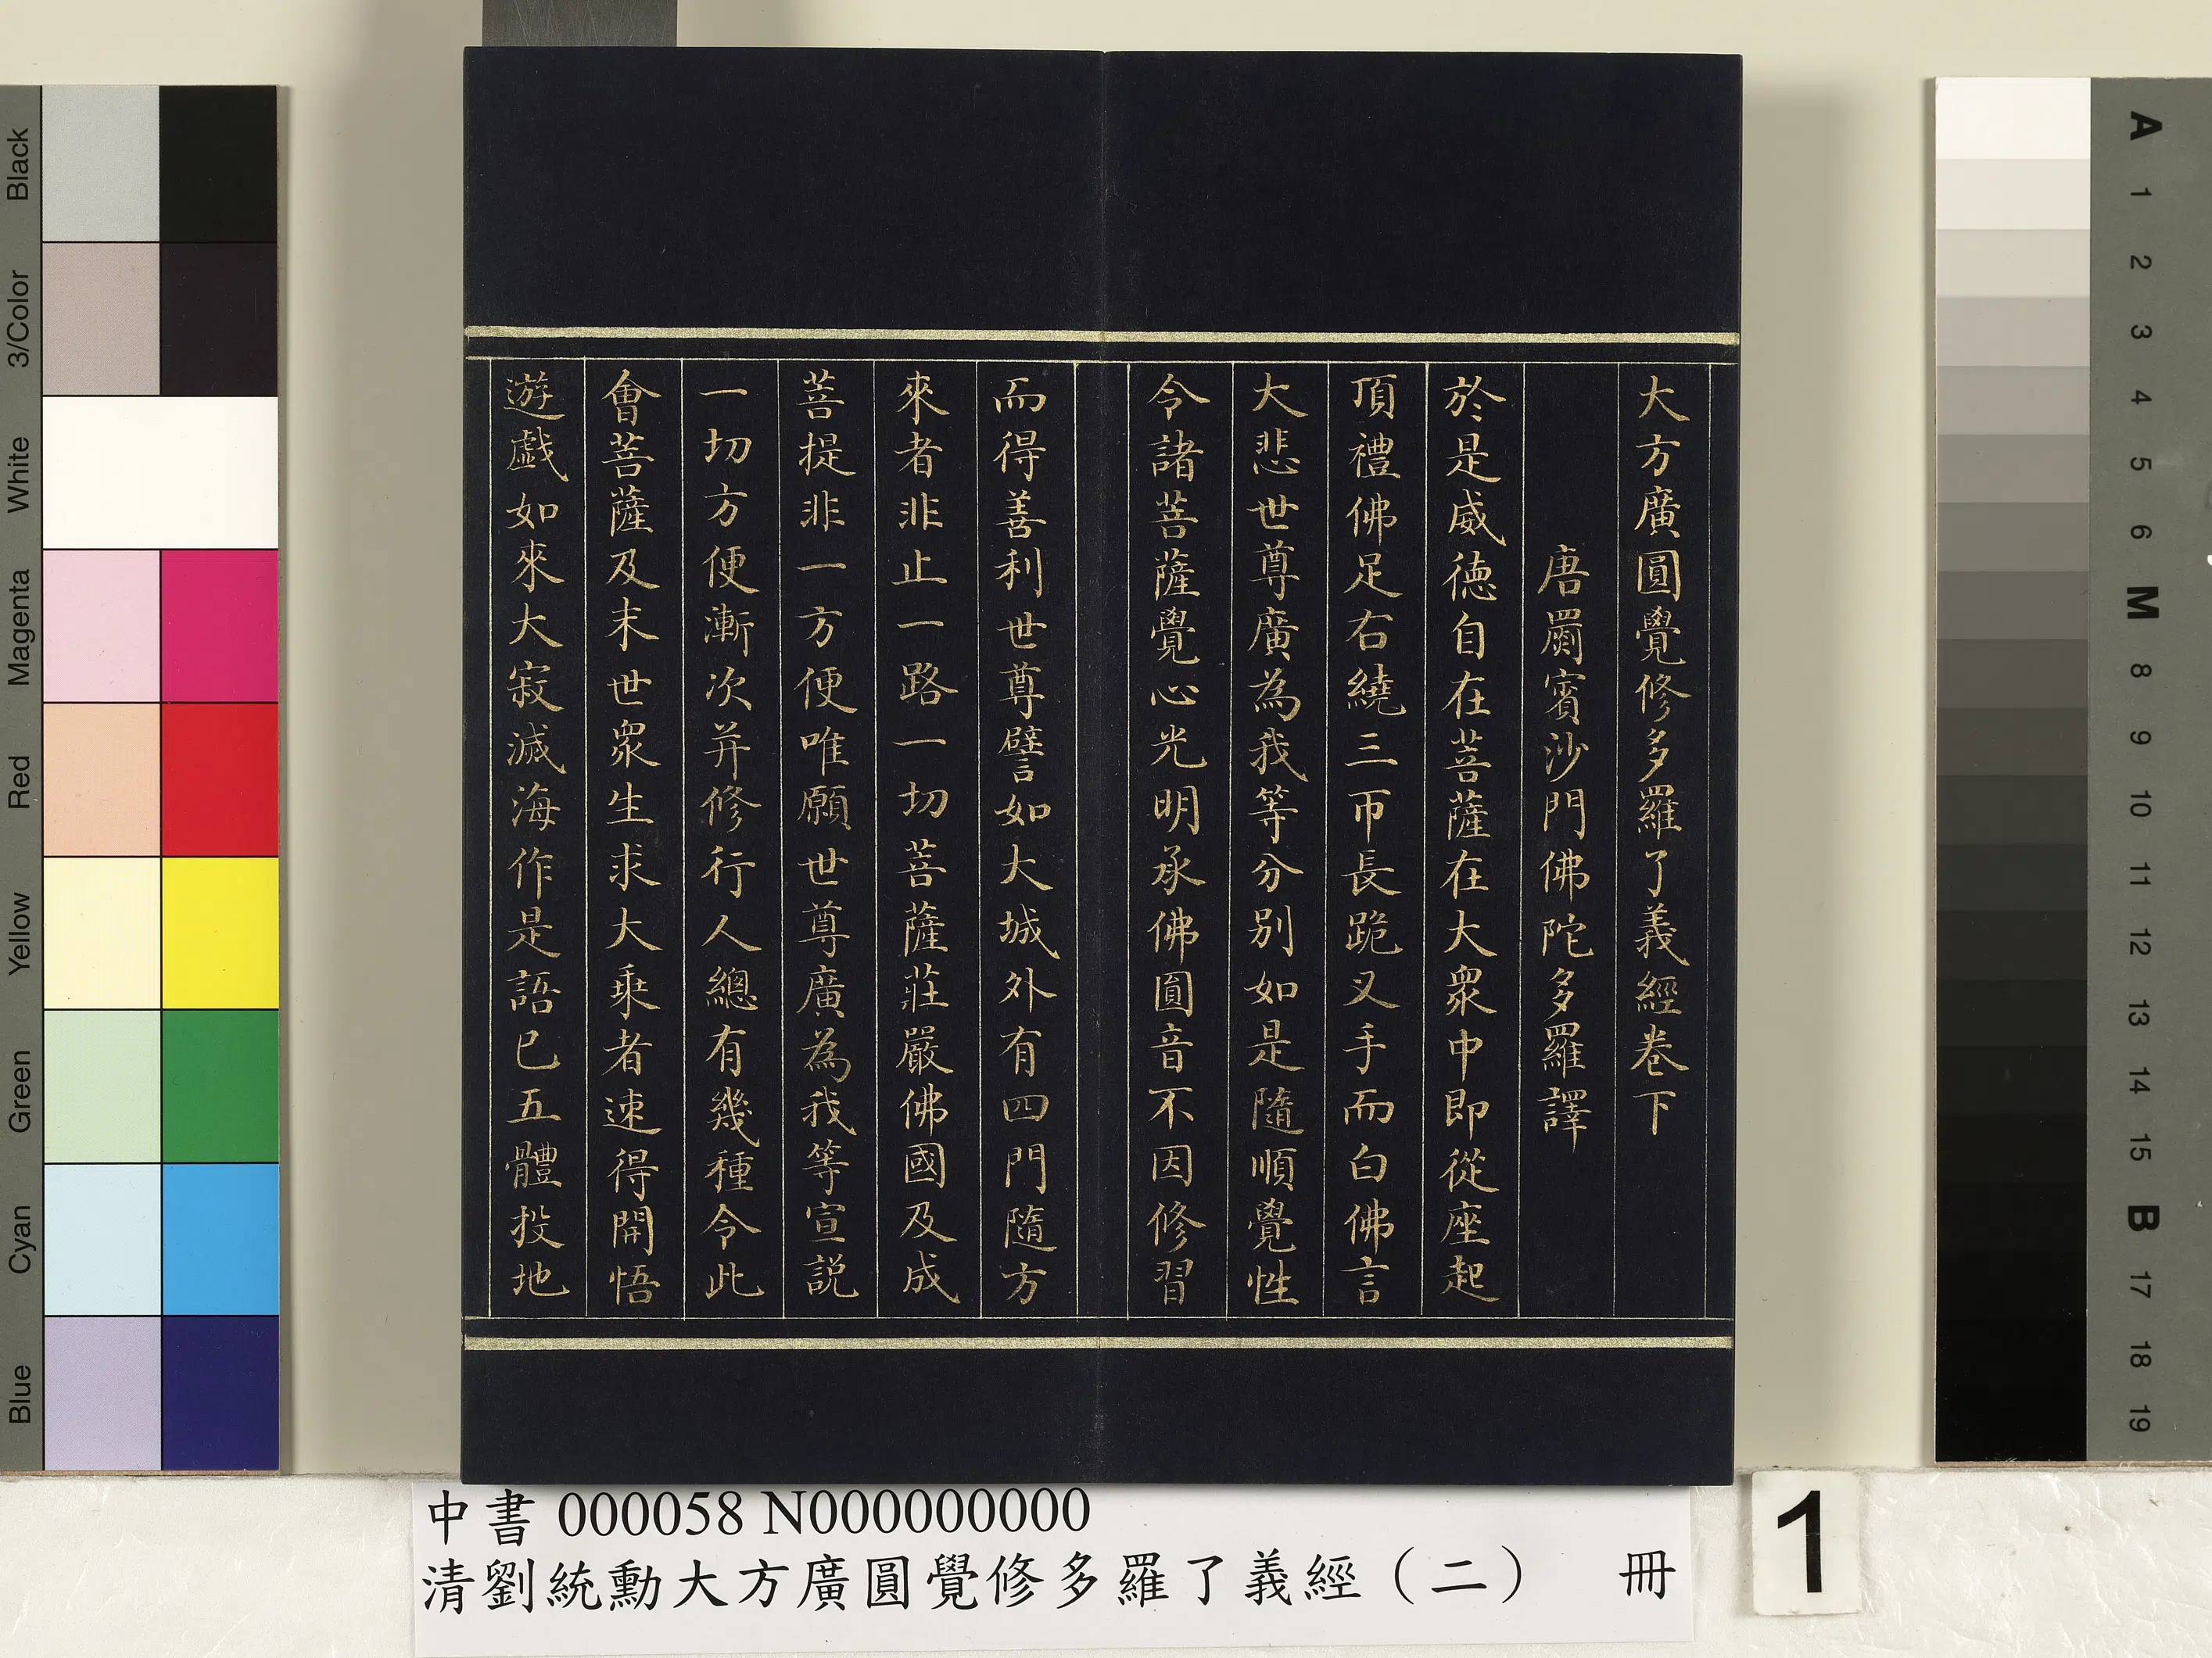 大方廣圓覺修多羅了義經卷下
唐罽賓沙門佛陀多羅譯
於是威德自在菩薩在大眾中即從座起
頂禮佛足右繞三帀長跪叉手而白佛言
大悲世尊廣為我等分別如是隨順覺性
令諸菩薩覺心光明承佛圓音不因修習
而得善利世尊譬如大城外有四門隨方
來者非止一路一切菩薩莊嚴佛國及成
菩提非一方便唯願世尊廣為我等宣説
一切方便漸次并修行人總有幾種令此
會菩薩及末世眾生求大乘者速得開悟
遊戲如來大寂滅海作是語已五體投地
中書 000058 N000000000
清劉統勳大方廣圓覺修多羅了義經（二） 冊
1
Black
3/Color
White
Magenta
Red
Yellow
Green
Cyan
Blue
A
1
2
3
4
5
6
M
8
9
10
11
12
13
14
15
B
17
18
19